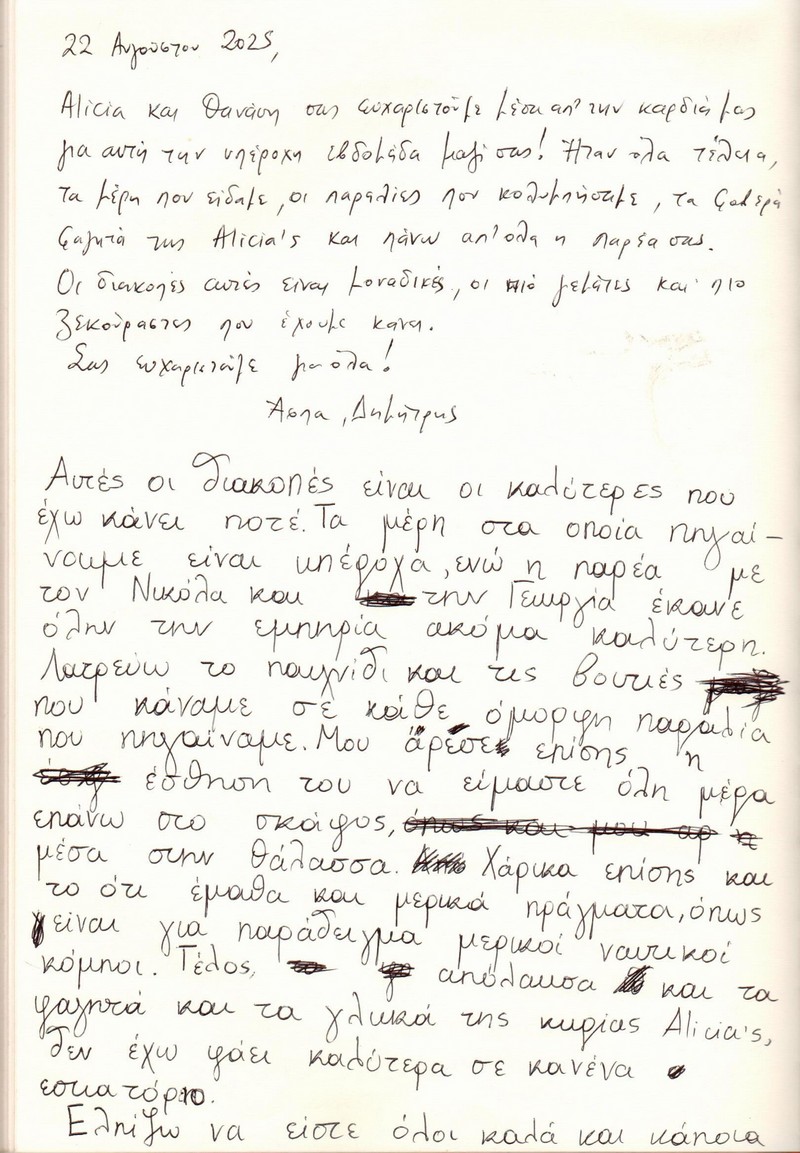 22 Αυγούστου 2025,
Alicia και Θανάση σας ευχαριστούμε μέσα απ' την καρδιά μας
για αυτή την υπέροχη εβδομάδα μαζί σας! Ήταν όλα τέλεια,
τα μέρη που είδαμε, οι παραλίες που κολυμπήσαμε, τα φοβερά
φαγητά της Alicia's και πάνω απ' όλα η παρέα σας.
Οι διακοπές αυτές είναι μοναδικές, οι πιο γεμάτες και πιο
ξεκούραστες που έχουμε κάνει.
Σας ευχαριστούμε για όλα!
Άσπα, Δημήτρης
Αυτές οι διακοπές είναι οι καλύτερες που
έχω κάνει ποτέ. Τα μέρη στα οποία πηγαί-
νουμε είναι υπέροχα, ενώ η παρέα με
τον Νικόλα και την Γεωργία έκανε
όλην την εμπηρία ακόμα καλύτερη.
Λατρεύω το παιχνίδι και τις βουτιές
που κάναμε σε κάθε όμορφη παραλία
που πηγαίναμε. Μου άρεσε επίσης η
έσθηση του να είμαστε όλη μέρα
επάνω στο σκάφος, όπως και μου αρ
μέσα στην θάλασσα. Χάρικα επίσης και
το ότι έμαθα και μερικά πράγματα, όπως
είναι για παράδειγμα μερικοί ναυτικοί
κόμποι. Τέλος, απόλαυσα και τα
φαγητά και τα γλυκά της κυρίας Alicia's,
δεν έχω φάει καλύτερα σε κανένα
εστιατόριο.
Ελπίζω να είστε όλοι καλά και κάποια